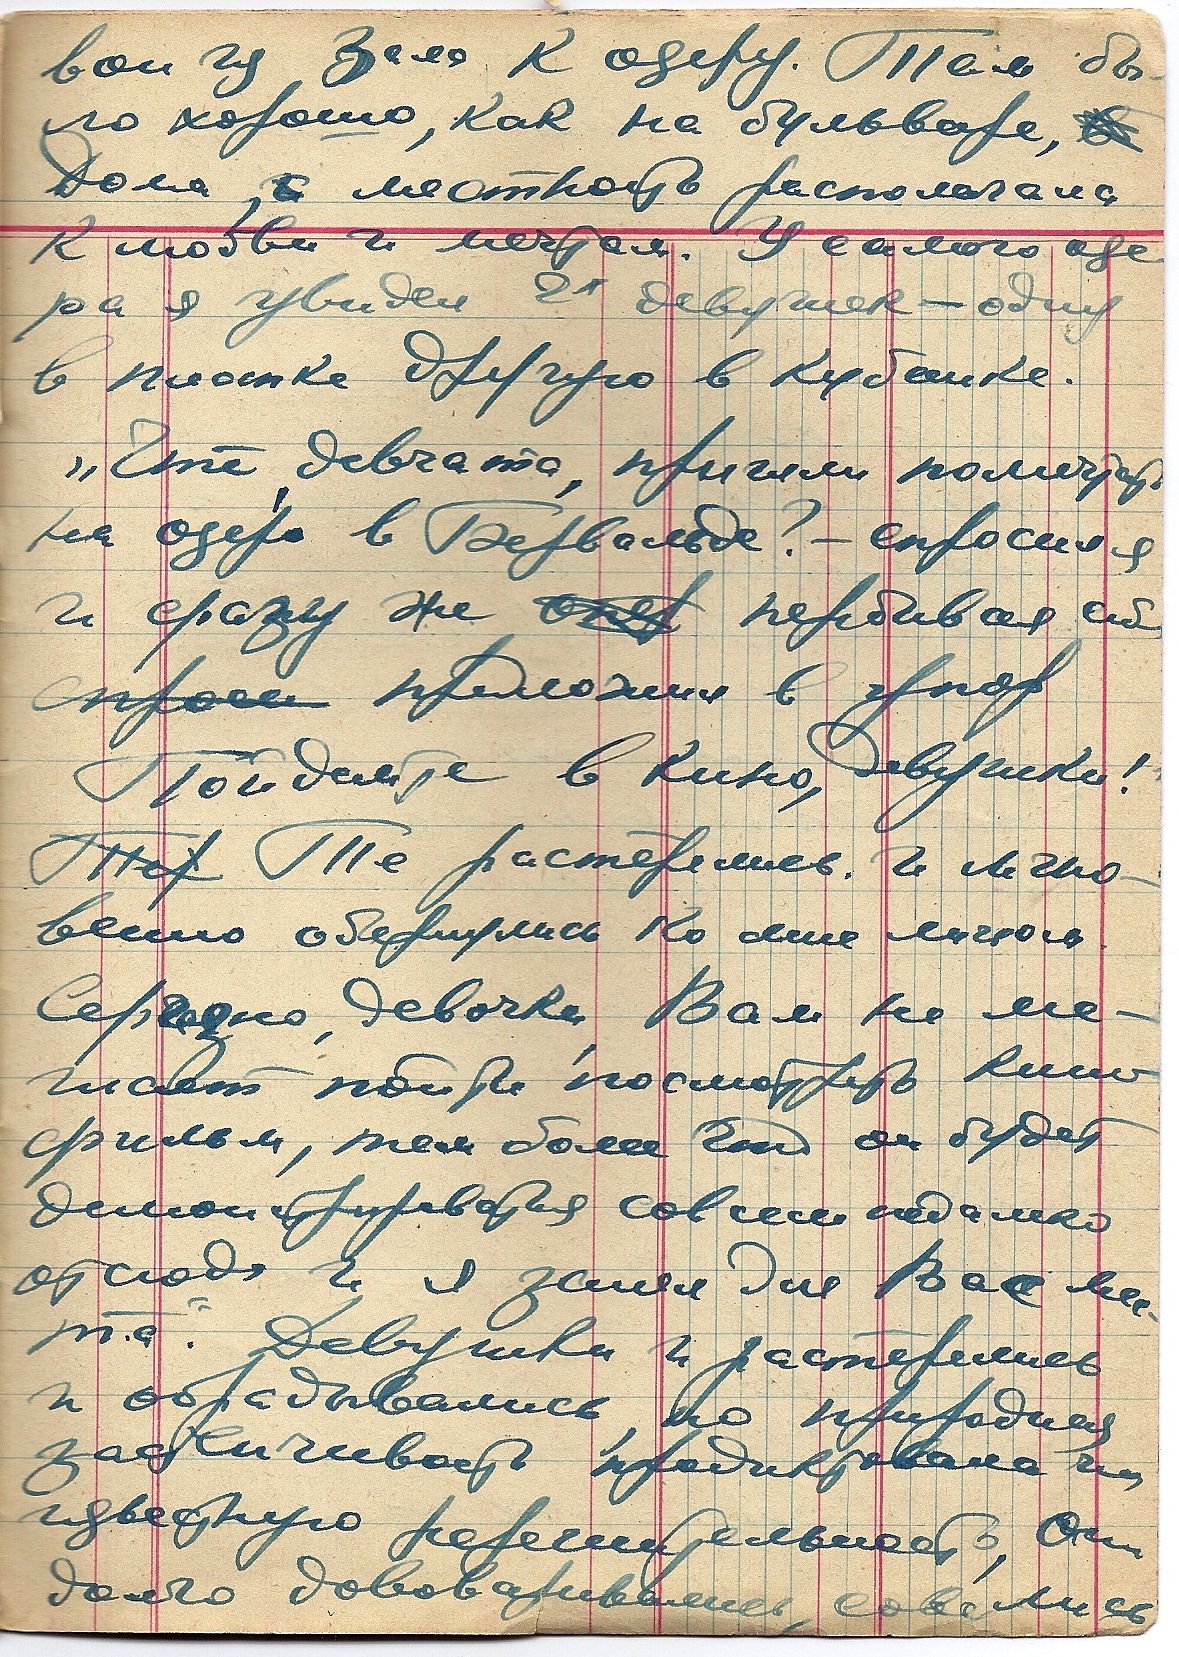 к озеру. Там бы-
ло хорошо, как на бульваре,
Дома, а местность располагала
к любви и мечтам. У самого озе-
ра я увидел 2х девушек — одну
в платке другую в кубанке.
„Что, девчата, пришли помечтать
на озеро в Бервальде? – спросил я
и сразу же перебивая себя
спросил предложил в упор
Пойдемте в кино, девушки!"
Те растерялись. и мгно-
венно обернулись ко мне лицом.
Серьезно, девочки, Вам не ме-
шает пойти посмотреть кино-
фильм, тем более что он будет
демонстрироваться совсем недалеко
отсюда и я занял для Вас мес-
та." Девушки и растерялись
и обрадывались, но природная
застенчивость продиктовала им
известную нерешительность, Они
долго договаривались,